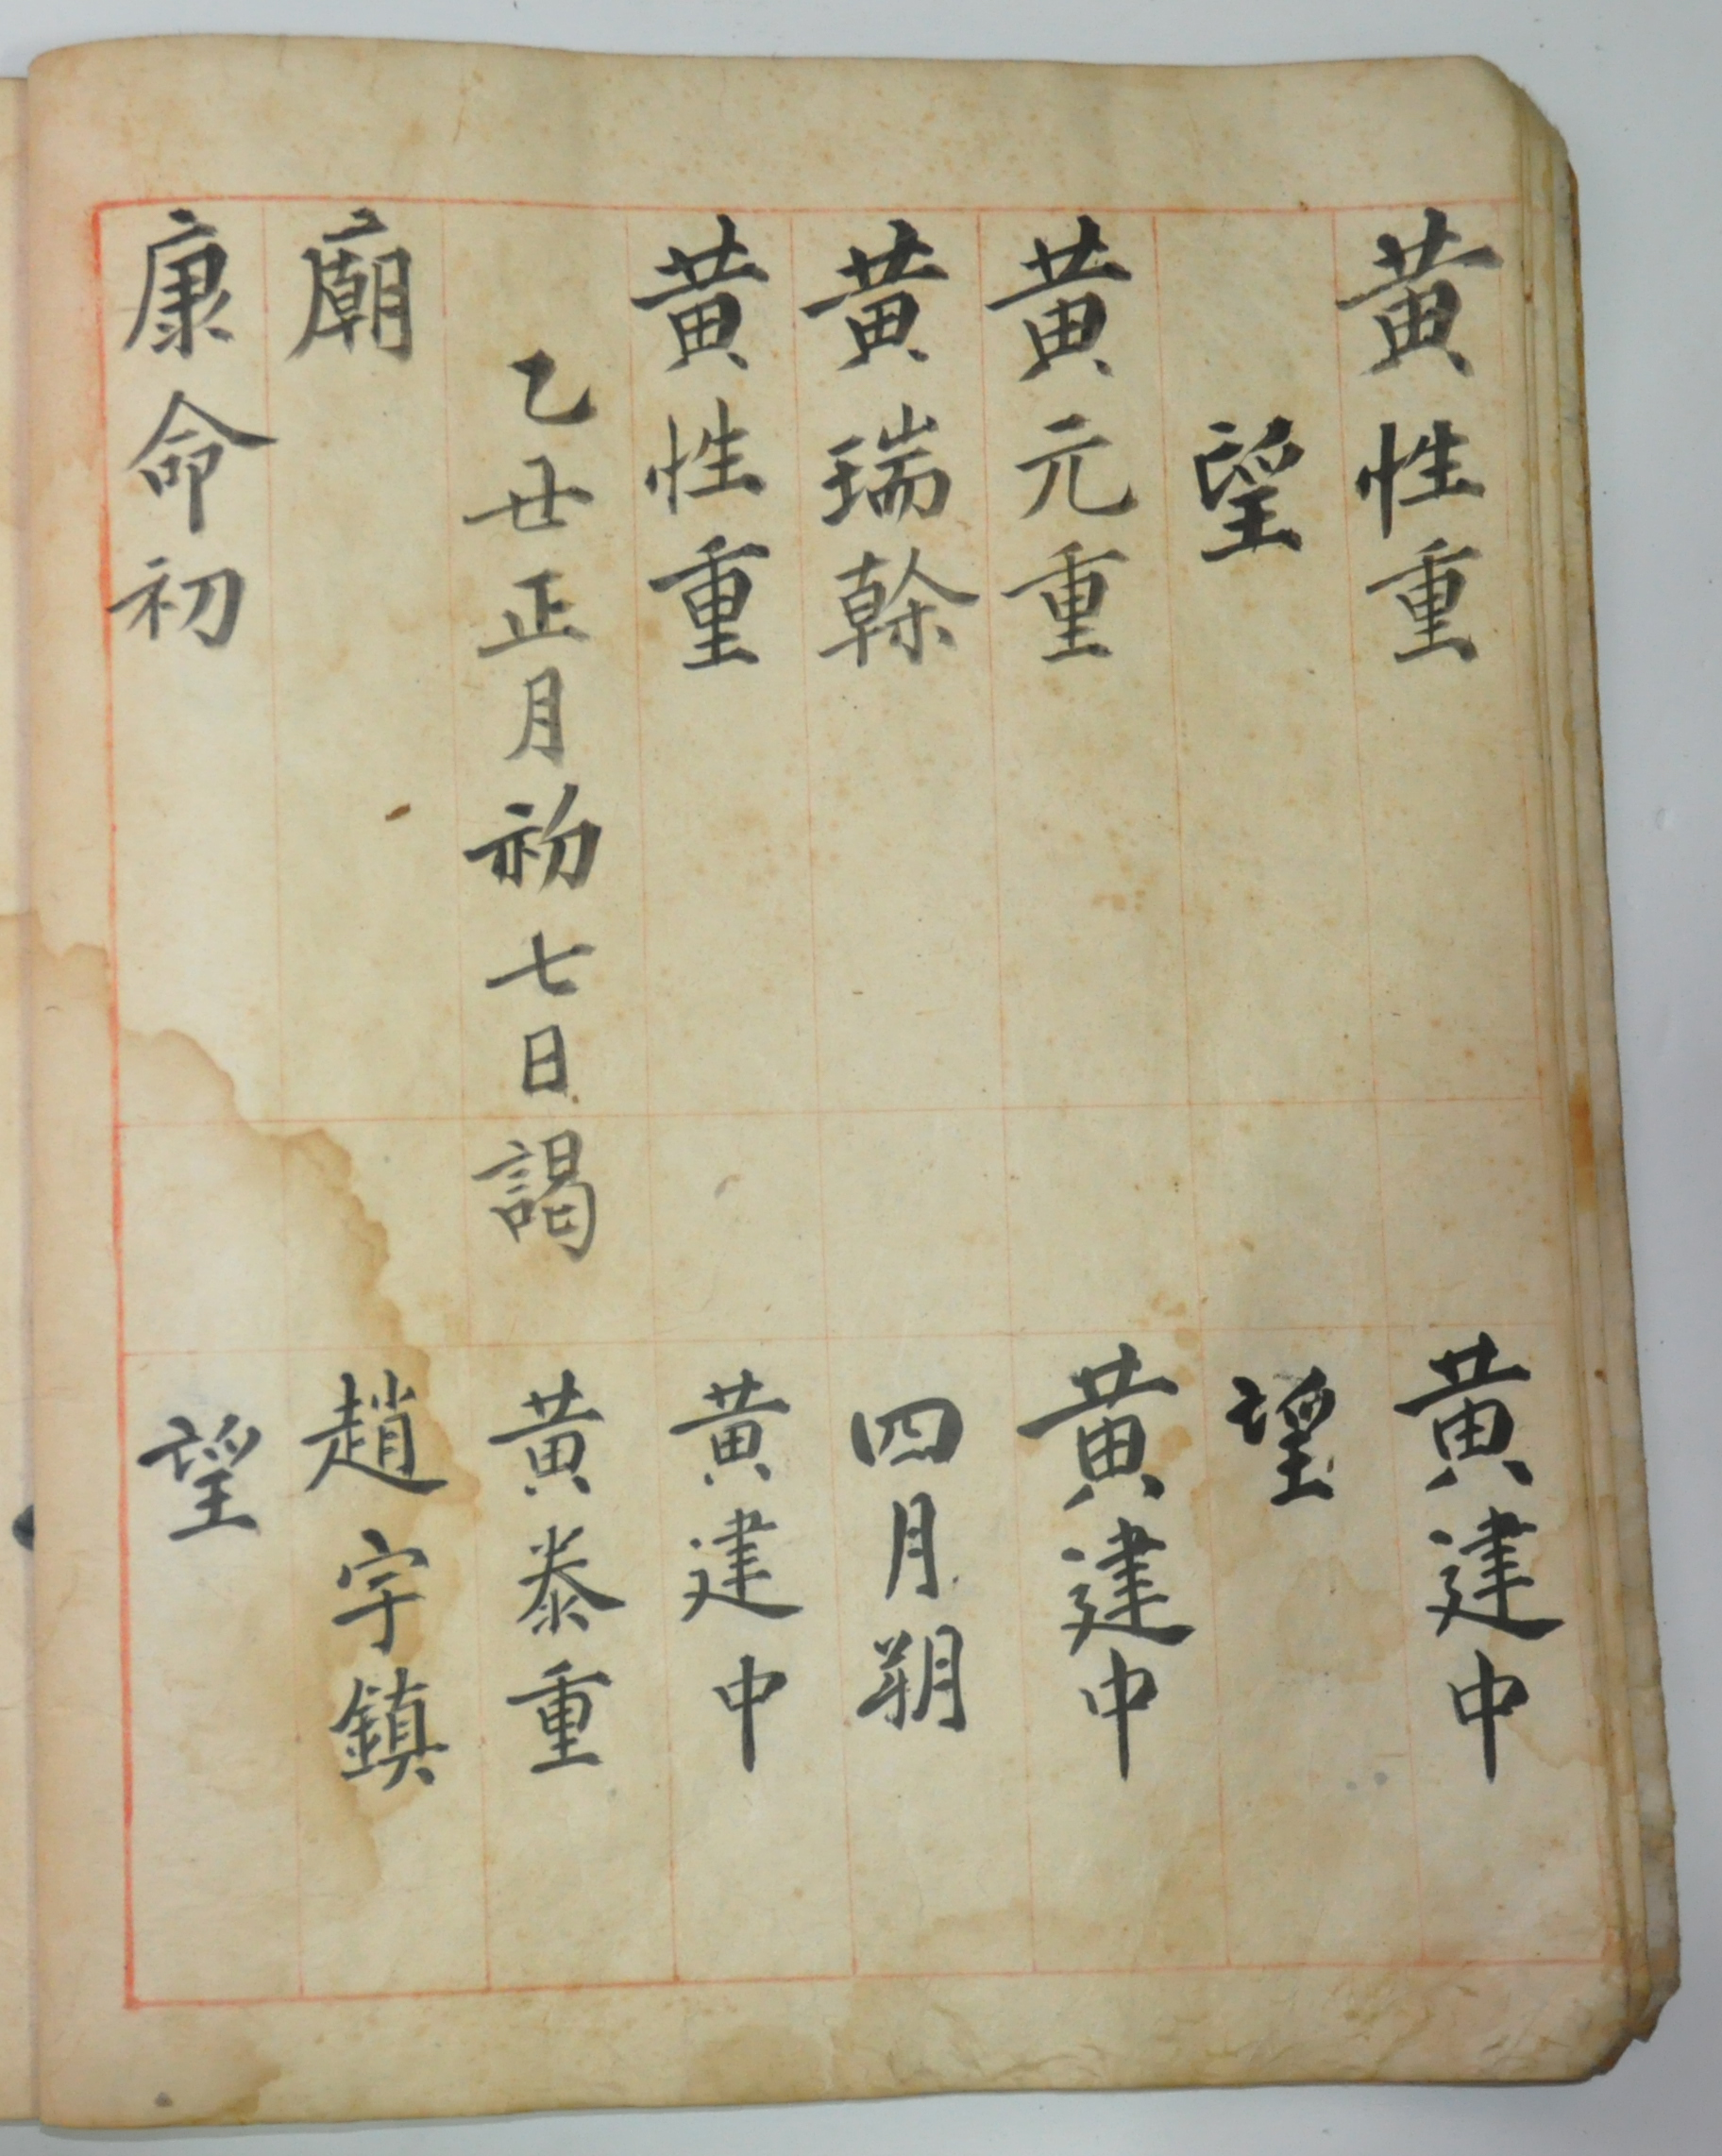 黄性重
望
黄元重
黄瑞榦
黄性重
乙丑正月初七日謁
廟
康命初
黄建中
望
黄建中
四月朔
黄建中
黄泰重
趙宇鎮
望